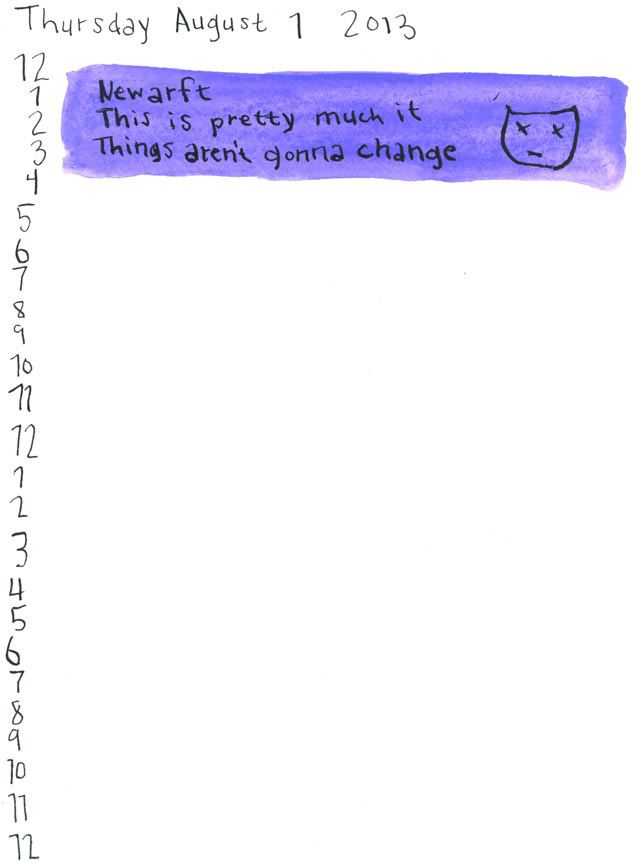 Thursday August 1 2013
12
1
2
3
4
5
6
7
8
9
10
11
12
1
2
3
4
5
6
7
8
9
10
11
12
Newarft
This is pretty much it
Things aren't gonna change